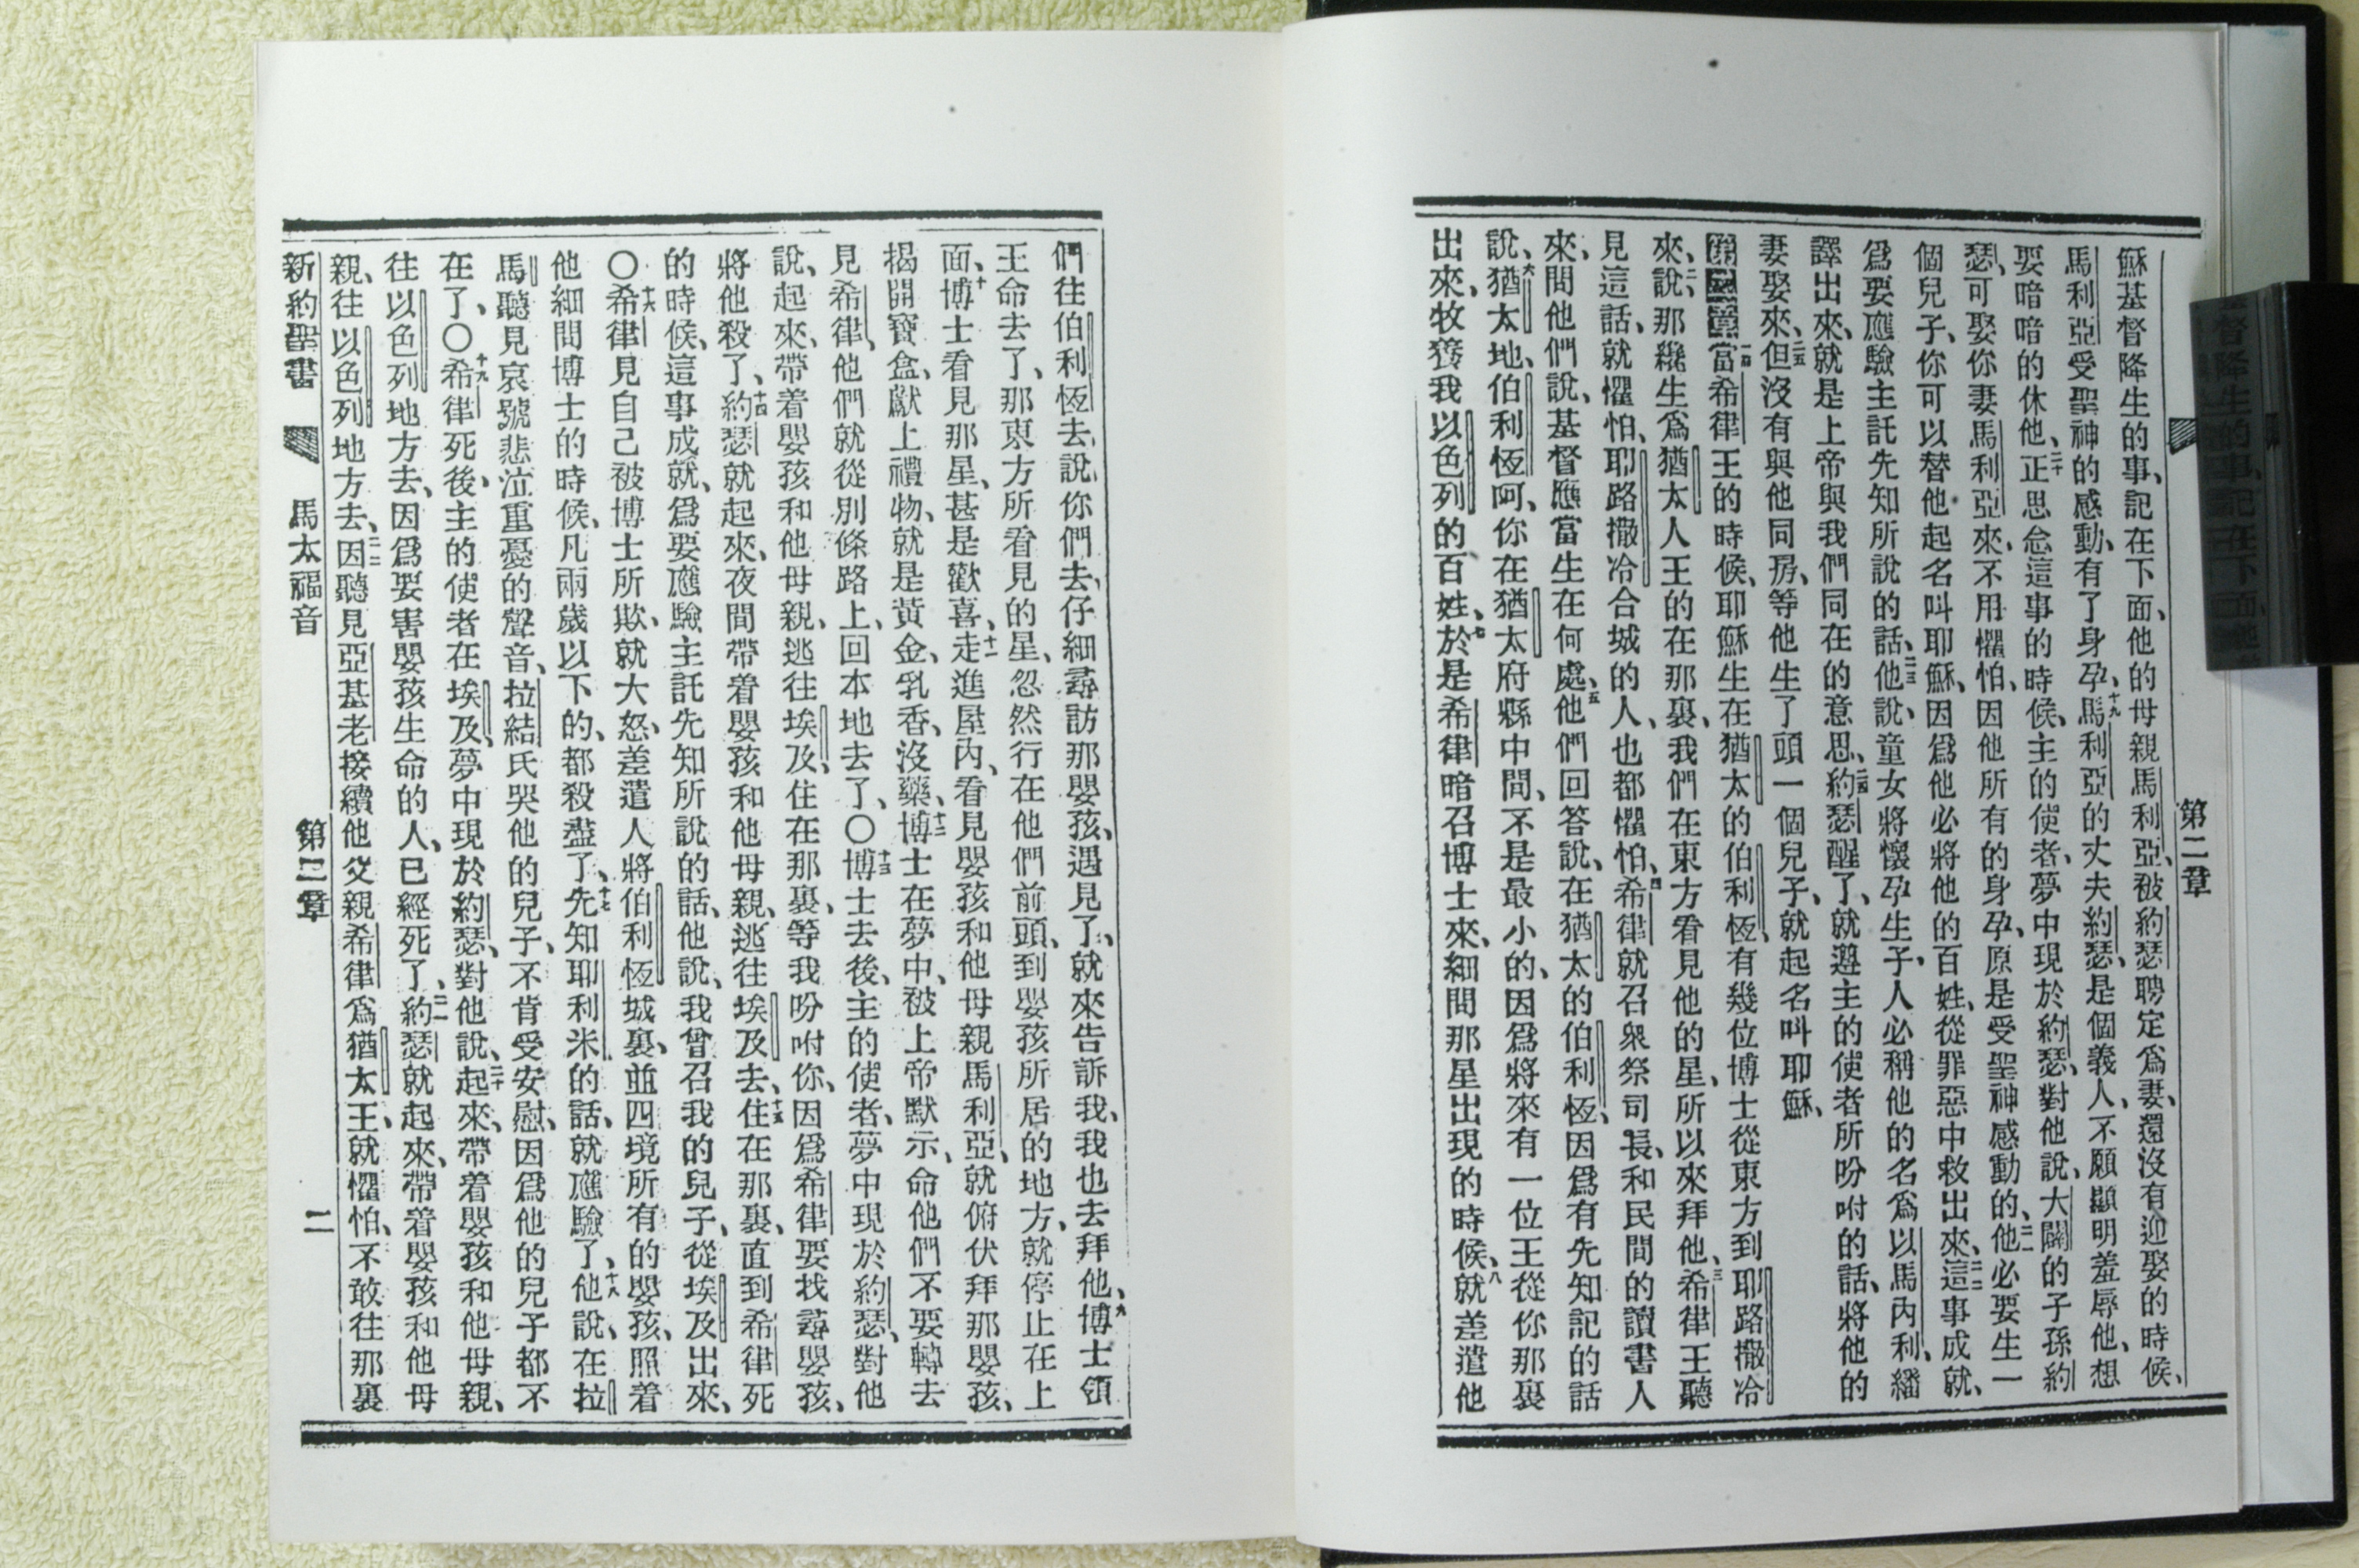 穌基督降生的事、記在下面、他的母親馬利亞、被約瑟聘定爲妻、還沒有迎娶的時候、
馬利亞受聖神的感動、有了身孕、十九馬利亞的丈夫約瑟、是個義人、不願顯明羞辱他、想
要暗暗的休他、二十正思念這事的時候、主的使者、夢中現於約瑟、對他說、大闢的子孫約
瑟、可娶你妻馬利亞來、不用懼怕、因他所有的身孕、原是受聖神感動的、二一他必要生一
個兒子、你可以替他起名叫耶穌、因爲他必將他的百姓、從罪惡中救出來、二二這事成就、
爲要應驗主託先知所說的話、二三他說、童女將懷孕生子、人必稱他的名爲以馬內利、繙
譯出來、就是上帝與我們同在的意思、二四約瑟醒了、就遵主的使者所吩咐的話、將他的
妻娶來、二五但沒有與他同房、等他生了頭一個兒子、就起名叫耶穌、
第二章一當希律王的時候、耶穌生在猶太的伯利恆、有幾位博士從東方到耶路撒冷
來、二說、那纔生爲猶太人王的在那裏、我們在東方看見他的星、所以來拜他、三希律王聽
見這話、就懼怕、耶路撒冷合城的人、也都懼怕、四希律就召衆祭司長、和民間的讀書人
來、問他們說、基督應當生在何處、五他們回答說、在猶太的伯利恆、因爲有先知記的話
說、六猶太地、伯利恆呵、你在猶太府縣中間、不是最小的、因爲將來有一位王從你那裏
出來、牧養我以色列的百姓、七於是希律暗召博士來、細問那星出現的時候、八就差遣他
第二章
們往伯利恆去、說、你們去、仔細尋訪那嬰孩、遇見了、就來告訴我、我也去拜他、九博士領
王命去了、那東方所看見的星、忽然行在他們前頭、到嬰孩所居的地方、就停止在上
面、十博士看見那星、甚是歡喜、十一走進屋內、看見嬰孩和他母親馬利亞、就俯伏拜那嬰孩、
揭開寶盒、獻上禮物、就是黃金、乳香、沒藥、十二博士在夢中、被上帝默示、命他們不要轉去
見希律、他們就從別條路上、回本地去了、〇十三博士去後、主的使者、夢中現於約瑟、對他
說、起來、帶着嬰孩和他母親、逃往埃及、住在那裏、等我吩咐你、因爲希律要找尋嬰孩、
將他殺了、十四約瑟就起來、夜間帶着嬰孩和他母親、逃往埃及去、十五住在那裏、直到希律死
的時候、這事成就、爲要應驗主託先知所說的話、他說、我曾召我的兒子、從埃及出來、
〇十六希律見自己被博士所欺、就大怒、差遣人將伯利恆城裏、並四境所有的嬰孩、照着
他細問博士的時候、凡兩歲以下的、都殺盡了、十七先知耶利米的話、就應驗了、十八他說、在拉
馬聽見哀號悲泣重憂的聲音、拉結氏哭他的兒子、不肯受安慰、因爲他的兒子都不
在了、〇十九希律死後、主的使者在埃及、夢中現於約瑟、對他說、二十起來、帶着嬰孩和他母親、
往以色列地方去、因爲要害嬰孩生命的人、已經死了、二一約瑟就起來、帶着嬰孩和他母
親、往以色列地方去、二二因聽見亞基老接續他父親希律爲猶太王、就懼怕、不敢往那裏
新約聖書 馬太福音 第二章 二